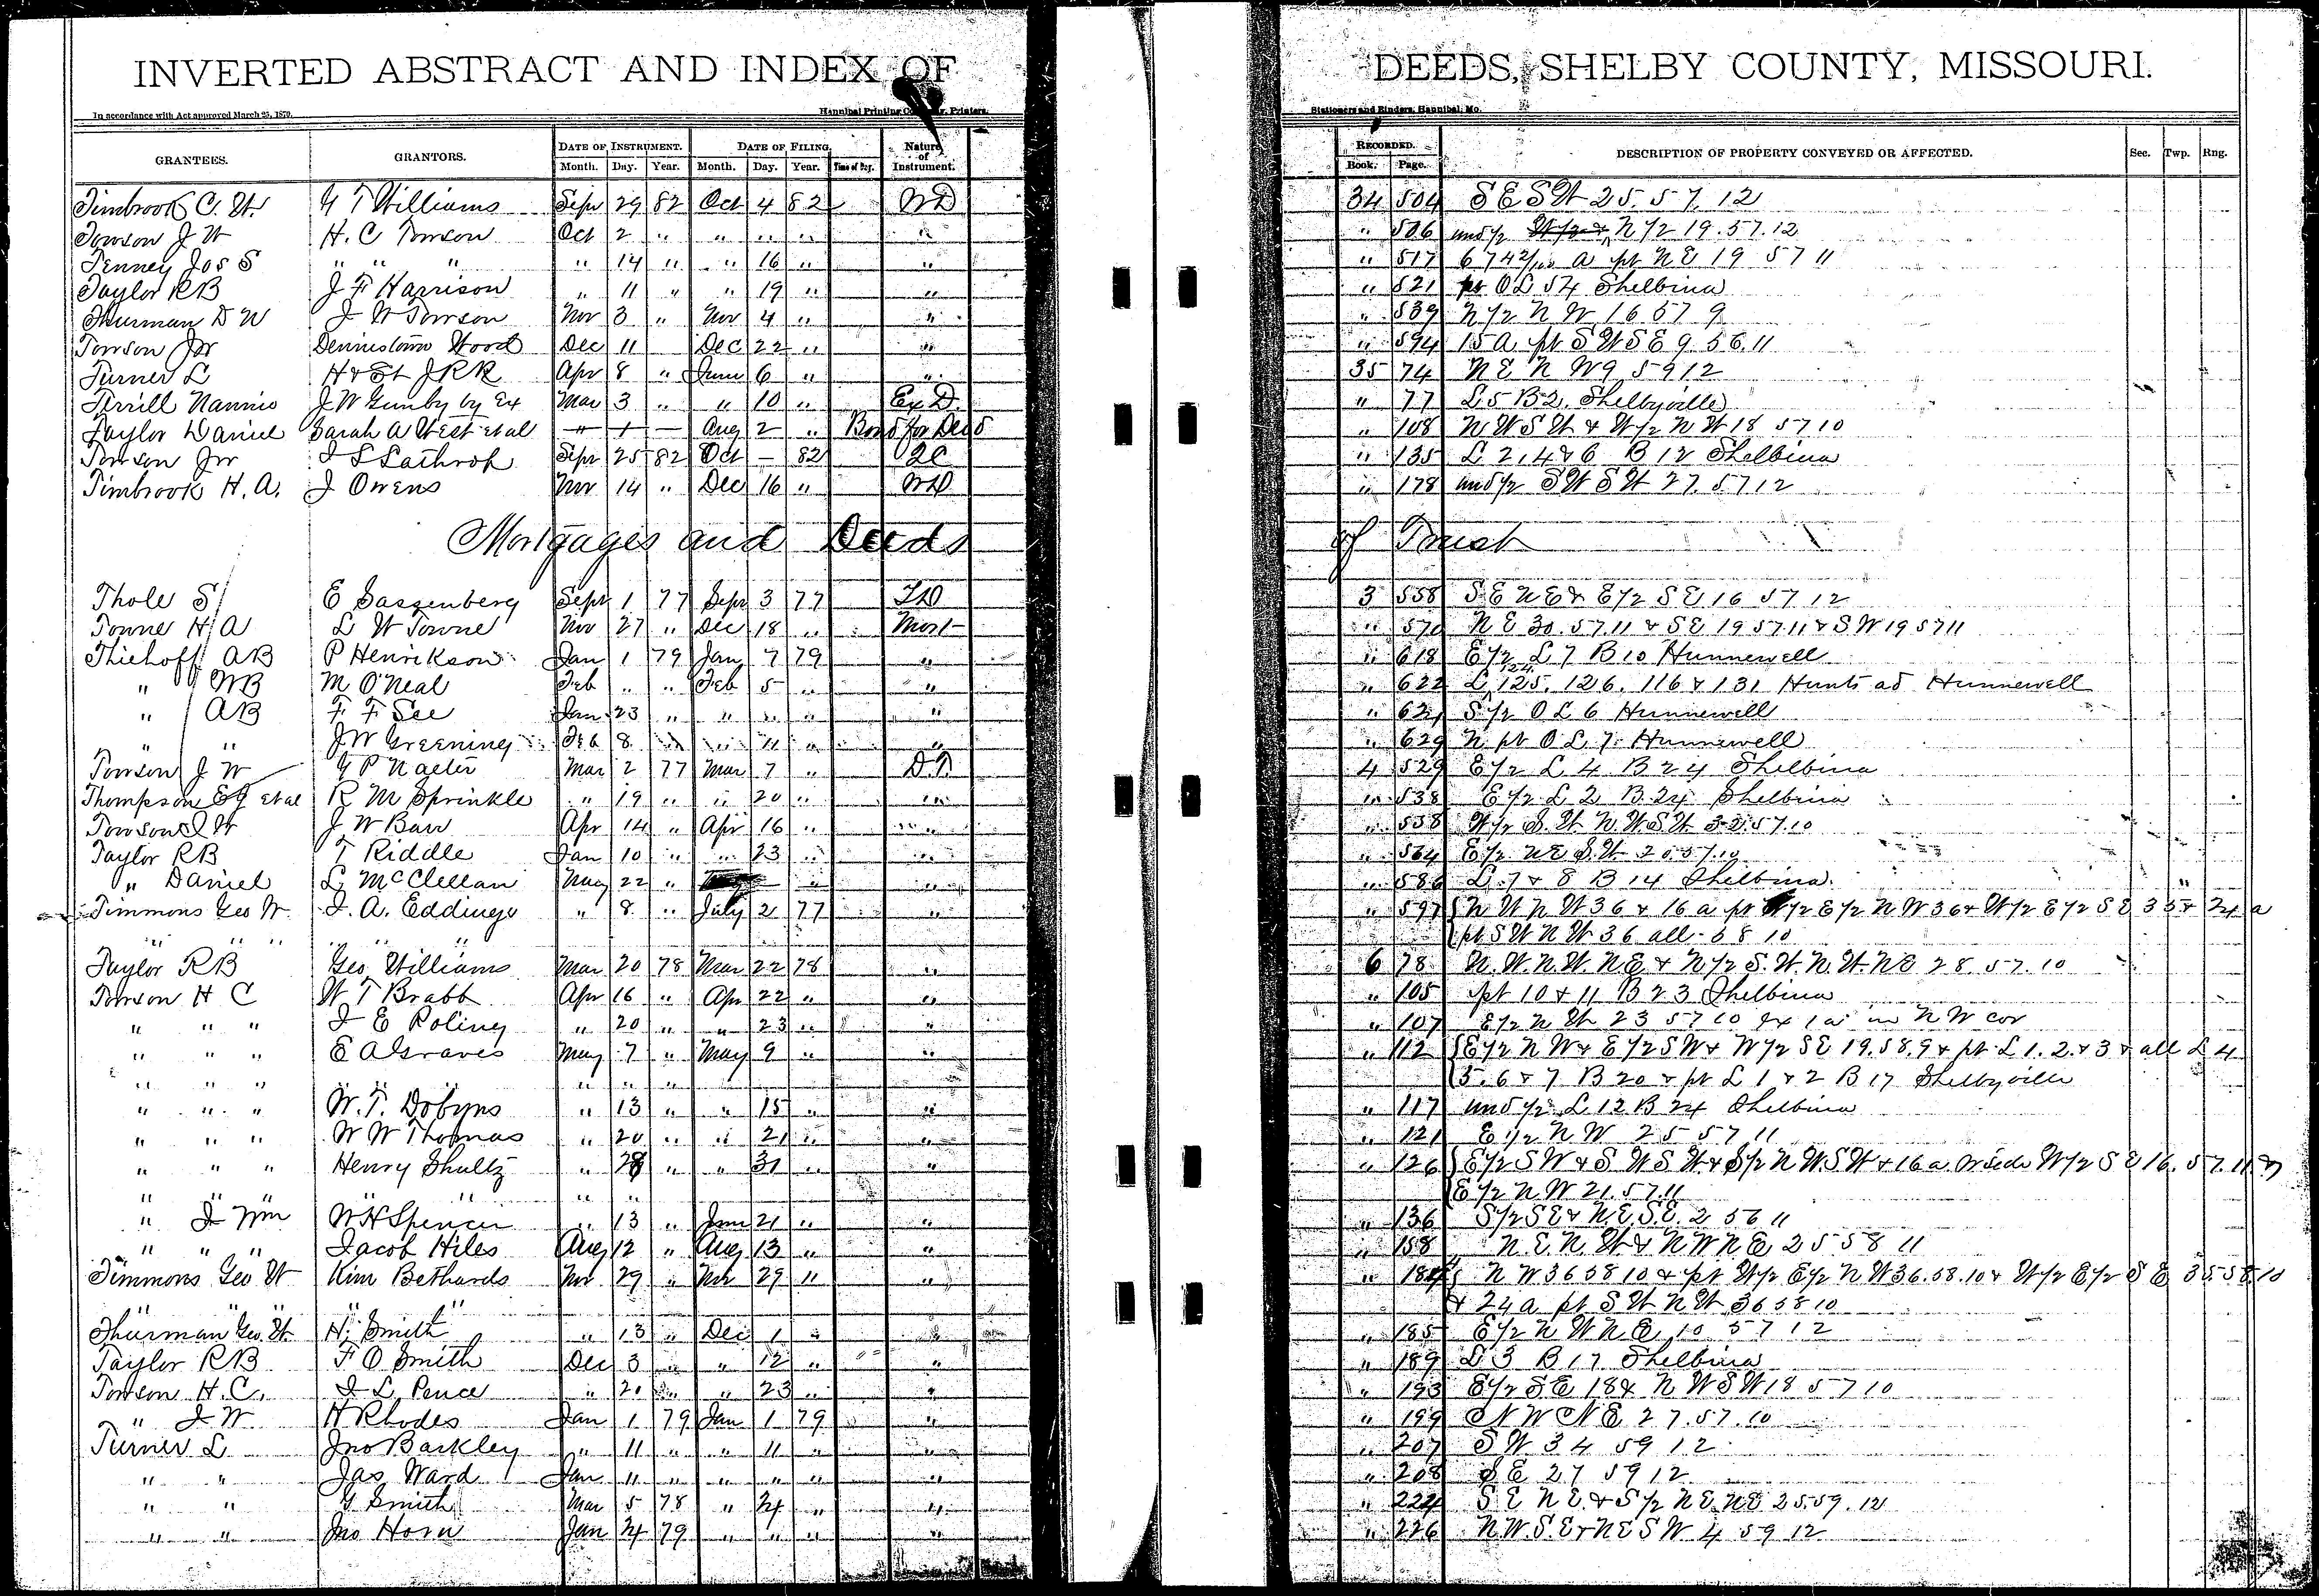 INVERTED ABSTRACT AND INDEX OF DEEDS, SHELBY COUNTY, MISSOURI.
In accordance with Act approved March 25, 1870. Hannibal Printing Printers. Stationers and Binders, Hannibal, Mo.
GRANTEES. GRANTORS. DATE OF INSTRUMENT. DATE OF FILING. Nature of Instrument. RECORDED. DESCRIPTION OF PROPERTY CONVEYED OR AFFECTED. Sec. Twp. Rng.
Month. Day. Year. Month. Day. Year. Time of Day. Book. Page.
Timbrook C. W. G T Williams Sepr 29 82 Oct 4 82 WD 34 504 S E S W 25. 57. 12
Towson J W H. C Towson Oct 2 " " " " " " 506 und ½ N ½ 19. 57. 12
Tenney Jos S " " " " 14 " " 16 " " " 517 6 742/100 a pt N E 19 57 11
Taylor R B J F Harrison " 11 " " 19 " " " 521 pt O L 54 Shelbina
Thurman D W J W Towson Nov 3 " Nov 4 " " " 539 N ½ N W 16 57 9
Towson JW Dennistown Wood Dec 11 Dec 22 " " " 594 15 A pt S W S E 9. 56. 11
Turner L H & St J RR Apr 8 " June 6 " " 35 74 N E N W 9 59 12
Terrill Nannie J W Gunby by Ex Mar 3 " " 10 " Ex D " 77 L 5 B 2. Shelbyville
Taylor Daniel Sarah A West et al — — — Aug 2 " Bond for Deed " 108 N W S W & W ½ N W 18 57 10
Towson JW J S Lathrop Sepr 25 82 Oct — 82 QC " 135 L 2, 4 & 6 B 12 Shelbina
Timbrook H. A. J Owens Nov 14 " Dec 16 " WD " 178 und ½ S W S W 27. 57 12
Mortgages and Deeds of Trust
Thole S E Sassenberg Sept 1 77 Sepr 3 77 TD 3 558 S E N E & E ½ S E 16 57 12
Towne H A L W Towne Nov 27 " Dec 18 " Mort " 570 N E 30. 57. 11 & S E 19 57. 11 & S W 19 57 11
Thiehoff AB P Henrikson Jan 1 79 Jan 7 79 " " 618 E ½ L 7 B 10 Hunnewell
" WB M O'Neal Feb " " Feb 5 " " " 622 L 124 125. 126. 116 & 131 Hunts ad Hunnewell
" AB F F See Jan 23 " " " " " " 621 S ½ O L 6 Hunnewell
" " J W Greening Feb 8 " " 11 " " " 629 N pt O L 7. Hunnewell
Towson J W G P Nagler Mar 2 77 Mar 7 " D T 4 529 E ½ L 4 B 24 Shelbina
Thompson E G et al R M Sprinkle " 19 " " 20 " " " 538 E ½ L 2 B 24 Shelbina
Towson J W J W Barr Apr 14 " Apr 16 " " " 558 W ½ S. W N. W. S W 33. 57. 10
Taylor R B T Riddle Jan 10 " " 23 " " " 564 E ½ N E S. W 20 57. 10
" Daniel L McClellan May 22 " " " " 586 L. 7 & 8 B 14 Shelbina.
Timmons Geo W J. A. Eddings " 8 " July 2 77 " " 597 N W N W 36 & 16 a pt W ½ E ½ N W 36 & W ½ E ½ S E 35 & 24 a
" " " " " pt S W N W 36 all 58 10
Taylor R B Geo Williams Mar 20 78 Mar 22 78 " 6 78 N. W. N. W. N E & N ½ S. W. N. W. N E 28. 57. 10
Towson H C W T Brabb Apr 16 " Apr 22 " " " 105 pt 10 & 11 B 23 Shelbina
" " " J E Poling " 20 " " 23 " " " 107 E ½ N W 23 57 10 Ex 1 a in N W cor
" " " E A Graves May 7 " May 9 " " " 112 E ½ N W & E ½ S W & W ½ S E 19. 58. 9 & pt L 1. 2. & 3 & all L 4
" " " " " " 5. 6 & 7 B 20 & pt L 1 & 2 B 17 Shelbyville
" " " W. T. Dobyns " 13 " " 15 " " " 117 und ½ L 12 B 24 Shelbina
" " " W W Thomas " 20 " " 21 " " " 121 E ½ N W 25 57 11
" " " Henry Shultz " 28 " " 31 " " " 126 E ½ S W & S W S W & S ½ N W S W & 16 a W side W ½ S E 16. 57. 11 &
" " " " " " " E ½ N W 21. 57. 11
" J Wm W H Spencer " 13 " June 21 " " " 136 S ½ S E & N. E. S. E. 2 56 11
" " " Jacob Hiles Aug 12 " Aug 13 " " " 158 N. E. N. W & N W N E 25 58 11
Timmons Geo W Kim Bethards Nov 29 " Nov 29 " " " 184 N W 36 58 10 & pt W ½ E ½ N W 36. 58. 10 & W ½ E ½ S E 35 58 10
" " " " & 24 a pt S W N W 36 58 10
Thurman Geo. W. H. Smith " 13 " Dec 1 " " " 185 E ½ N W N E 10 57 12
Taylor R B F O Smith Dec 3 " " 12 " " " 189 L 3 B 17 Shelbina
Towson H. C. J L Pence " 20 " " 23 " " " 193 E ½ S E 18 & N W S W 18 57 10
" J W H Rhodes Jan 1 79 Jan 1 79 " " 199 N W N E 27. 57. 10
Turner L Jno Barkley " 11 " " 11 " " " 207 S W 34 59 12
" " Jas Ward Jan 11 " " " " " " 208 S E 27 59 12
" " G Smith Mar 5 78 " 24 " " " 224 S E N E. & S ½ N E. N E 25. 59. 12
" " Jno Horn Jan 24 79 " " " " " 226 N. W. S. E & N E S W 4 59 12